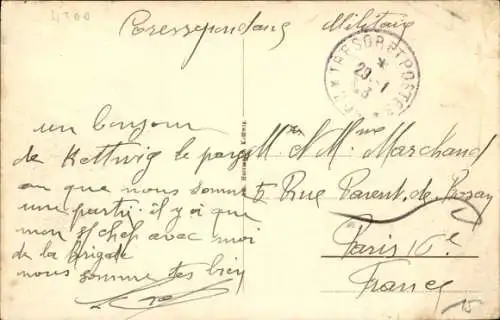 4300
Corresspondans Militaire
TRESOR ET POSTES
29-1
3
un bonjour
de Kettwig le pays
ou que nous somme
une partie: il y a que
mon s/ chef avec moi
de la Brigade
nous somme tres bien
Mr et Mme Marchand
5 Rue Parent. de. Rosay
Paris 16e
France
15